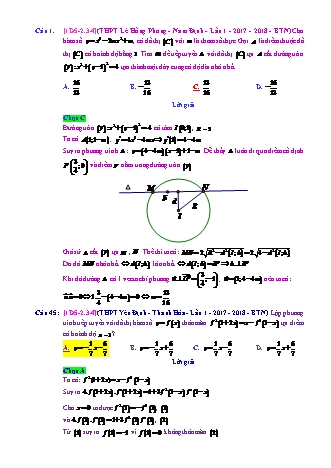 Câu 1. [1D5-2.3-4] (THPT Lê Hồng Phong - Nam Định - Lần 1 - 2017 - 2018 - BTN) Cho
hàm số y = x⁴ − 2mx² + m, có đồ thị (C) với m là tham số thực. Gọi A là điểm thuộc đồ
thị (C) có hoành độ bằng 1. Tìm m để tiếp tuyến Δ với đồ thị (C) tại A cắt đường tròn
(γ): x² + (y − 1)² = 4 tạo thành một dây cung có độ dài nhỏ nhất.
A. 16/13 B. −13/16 C. 13/16 D. −16/13
Lời giải
Chọn C
Đường tròn (γ): x² + (y − 1)² = 4 có tâm I(0;1), R = 2
Ta có A(1;1−m), y' = 4x³ − 4mx ⇒ y'(1) = 4 − 4m
Suy ra phương trình Δ: y = (4 − 4m)(x − 1) + 1 − m. Dễ thấy Δ luôn đi qua điểm cố định
F(3/4;0) và điểm F nằm trong đường tròn (γ)
Δ M F N
d R
I
Giả sử Δ cắt (γ) tại M, N. Thế thì ta có: MN = 2√(R² − d²(I;Δ)) = 2√(4 − d²(I;Δ))
Do đó MN nhỏ nhất ⇔ d(I;Δ) lớn nhất ⇔ d(I;Δ) = IF ⇔ Δ ⊥ IF
Khi đó đường Δ có 1 vectơ chỉ phương u ⊥ IF = (3/4;−1), u = (1;4−4m) nên ta có:
u.n = 0 ⇔ 1.3/4 − (4 − 4m) = 0 ⇔ m = 13/16
Câu 45: [1D5-2.3-4] (THPT Yên Định - Thanh Hóa - Lần 1 - 2017 - 2018 - BTN) Lập phương
trình tiếp tuyến với đồ thị hàm số y = f(x) thỏa mãn f²(1+2x) = x − f³(1−x) tại điểm
có hoành độ x = 1?
A. y = −1/7 x − 6/7 B. y = −1/7 x + 6/7 C. y = 1/7 x − 6/7 D. y = 1/7 x + 6/7
Lời giải
Chọn A
Ta có: f²(1+2x) = x − f³(1−x)
Suy ra 4.f(1+2x).f'(1+2x) = 1 + 3f²(1−x)f'(1−x)
Cho x = 0 ta được f²(1) = −f³(1), (1)
và 4.f(1).f'(1) = 1 + 3f²(1).f'(1) (2)
Từ (1) suy ra f(1) = −1 vì f(1) = 0 không thỏa mãn (2)